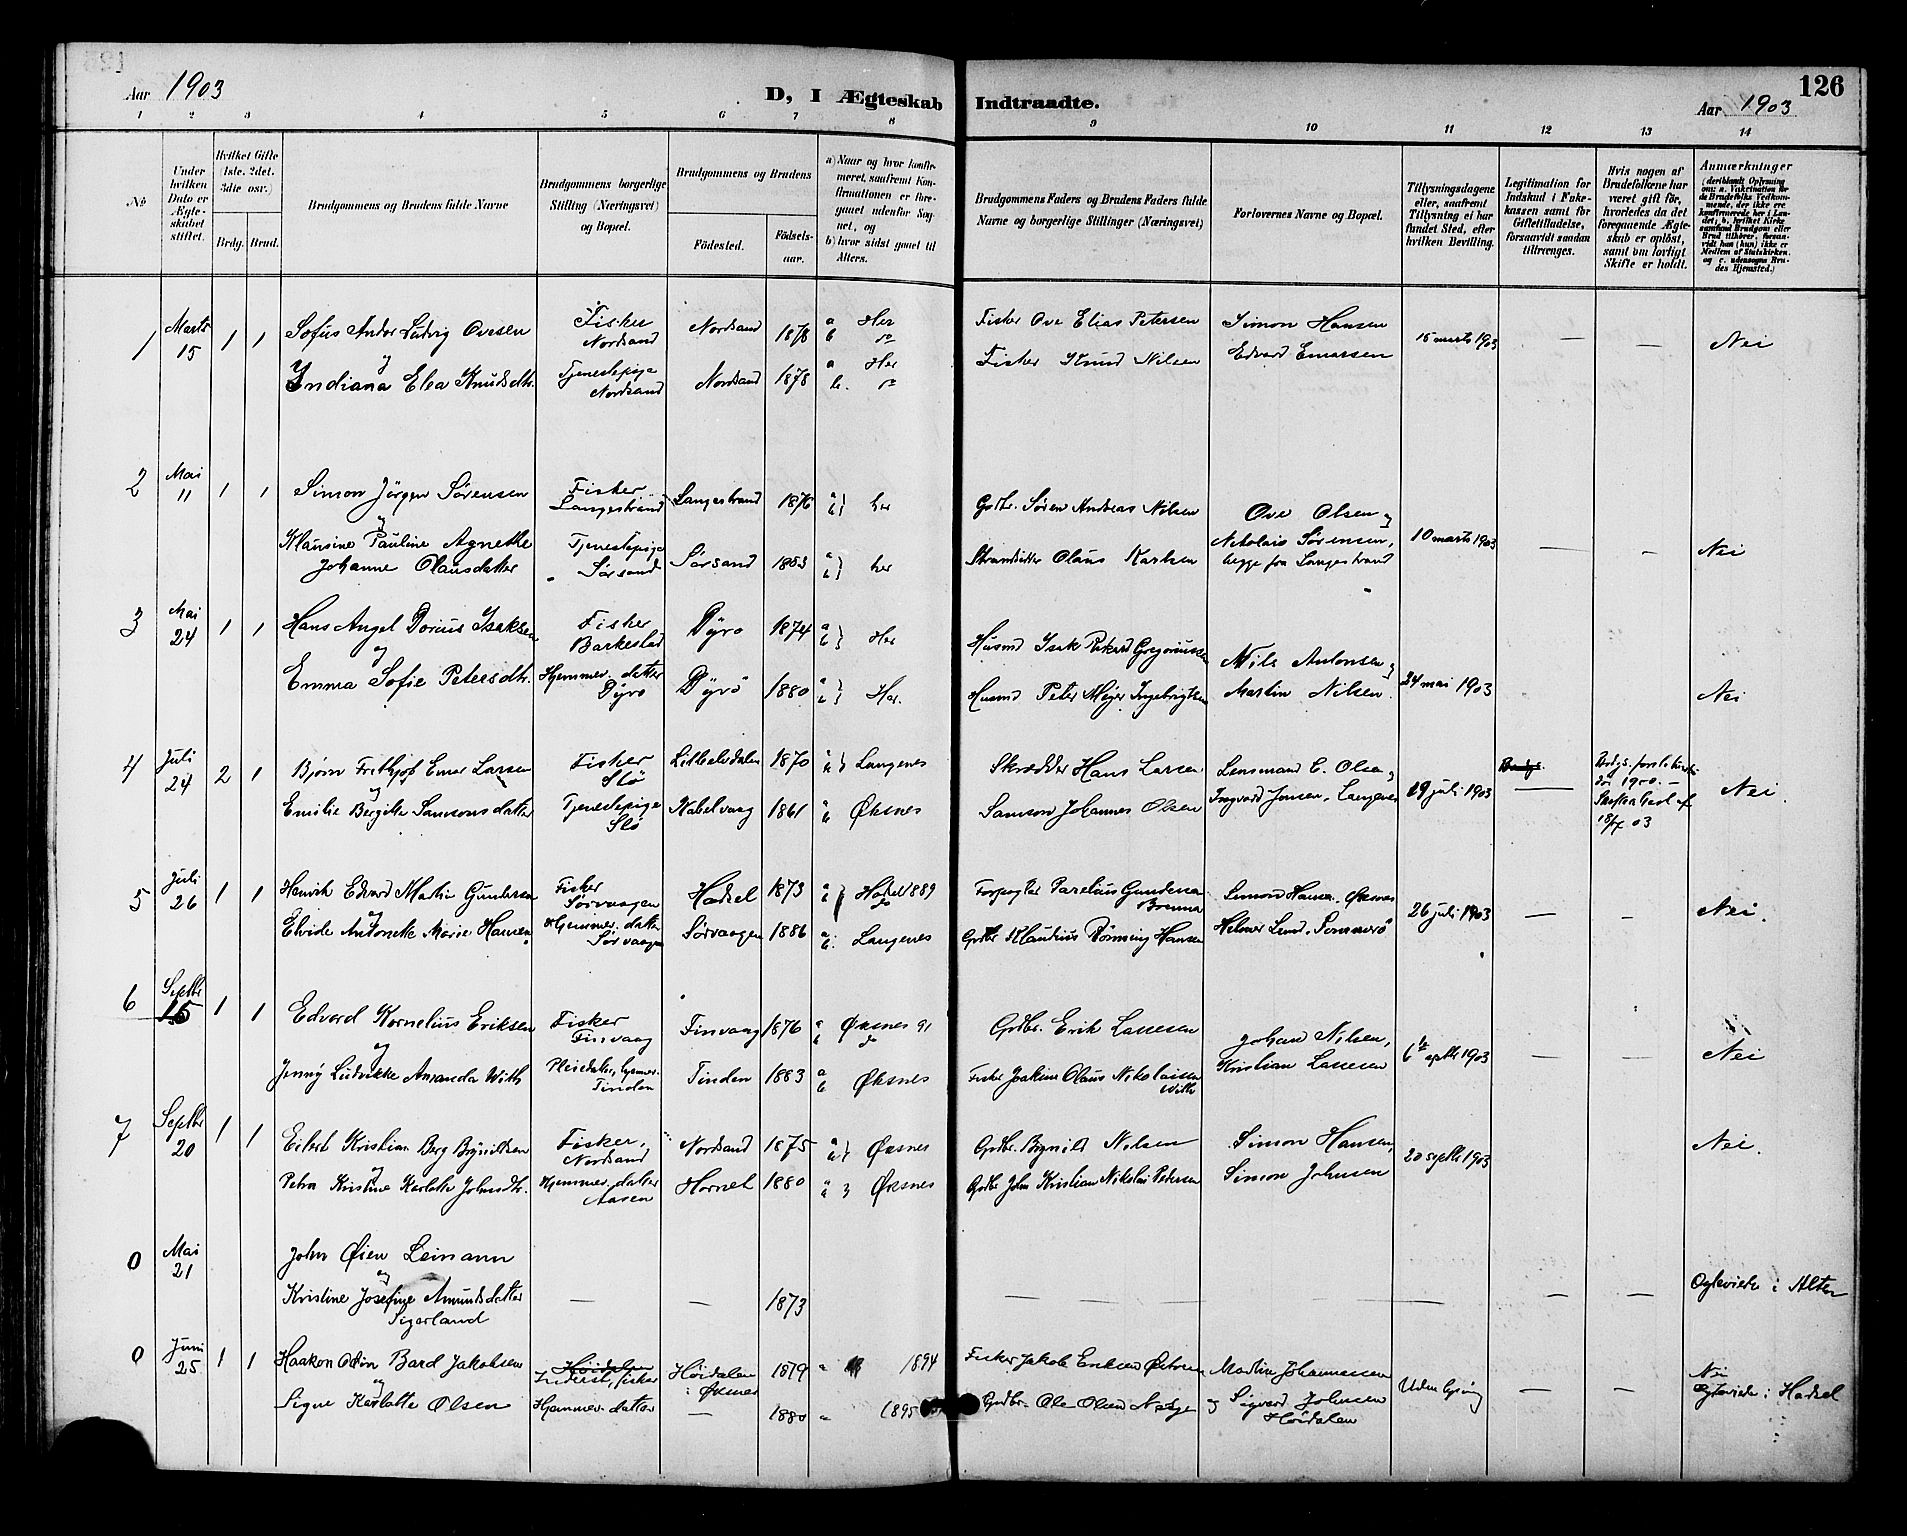 Aar 1903
D, I Ægteskab Indtraadte.
126
Aar 1903
1 2 3 4 5 6 7 8 9 10 11 12 13 14
No
Under hvilken Dato er Ægteskabet stiftet.
Hvilket Gifte (1ste, 2det, 3die osv.)
Brdg. Brud.
Brudgommens og Brudens fulde Navne
Brudgommens borgerlige Stilling (Næringsvei) og Bopæl.
Brudgommens og Brudens
Fødested. Fødsels-aar.
a) Naar og hvor konfirmeret, saafremt Konfirmationen er foregaaet udenfor Sognet, og
b) hvor sidst gaaet til Alters.
Brudgommens Faders og Brudens Faders fulde Navne og borgerlige Stillinger (Næringsvei)
Forlovernes Navne og Bopæl.
Tillysningsdagene eller, saafremt Tillysning ei har fundet Sted, efter hvilken Bevilling.
Legitimation for Indskud i Enkekassen samt for Giftetilladelse, forsaavidt saadan tiltrænges.
Hvis nogen af Brudefolkene har været gift før, hvorledes da det foregaaende Ægteskab er opløst, samt om lovligt Skifte er holdt.
Anmærkninger
(deriblandt Oplysning om: a. Vakcination for de Brudefolks Vedkommende, der ikke ere konfirmerede her i Landet; b. hvilket Kirkesamfund Brudgom eller Brud tilhører, forsaavidt han (hun) ikke er Medlem af Statskirken, og c. udensogns Brudes Hjemsted.)
1 Marts 15 1 1 Sofus Andor Ludvig Ovesen Fisker Nordsand Nordsand 1878 a b Her do Fisker Ove Elias Petersen Simon Hansen 15 marts 1903 — — Nei
og
Indiana Elea Knudsdtr. Tjenestepige Nordsand Nordsand 1878 a b. Her do Fisker Knud Nilsen Edvard Emarsen
2 Mai 11 1 1 Simon Jörgen Sørensen Fisker Langestrand Langestrand 1876 a b her Gbr. Søren Andreas Nilsen Ove Olsen og
og
Klausine Pauline Agnethe Johanne Olausdatter Tjenestepige Sørsand Sørsand 1883 a b her Strandsidder Olaus Karlsen Nikolais Sørensen, begge fra Langestrand 10 marts 1903 — — Nei
3 Mai 24 1 1 Hans Angel Dorius Isaksen Fisker Barkestad Dyrø 1874 a b Her Husmd Isak Gregoriussen Nils Antonsen og
og
Emma Sofie Petersdtr. Hjemmev. datter Dyrø Dyrö 1880 a b Her. Husmd Peter Mejer Ingebrigtsen Martin Nilsen. 24 mai 1903 Nei
4 Juli 24 2 1 Bjørn Frithjof Emer Larsen Fisker Slø 1870 Langenes Skrædder Hans Larsen Lensmand E. Olsen og Brdgs. første hustru
og
Emilie Bergitte Samsonsdatter Tjenestepige Slø Nabelvaag 1861 a b Øksnes Samson Johannes Olsen Ingvard Jensen, Langenes 19 juli 1903 — død 1900. — Skifte afholdt 18/7 03 Nei.
5 Juli 26 1 1 Henrik Edvard Martin Gundersen Fisker Sørvaagen Hadsel 1873 a b Hadsel 1889 do Forpagter Parelius Gundersen Simon Hansen, Øksnes
og
Elvide Antonette Marie Hansen Hjemmev. datter Sørvaagen Sørvaagen 1886 a b. Langenes Grdbr Klaudius Rönning Hansen Helmer Lund, Tinnerø 26 juli 1903 — — Nei.
6 Septbr 15 1 1 Edvard Kornelius Eriksen Fisker Finvaag Finvaag 1876 a b Øksnes 91 do Grdbr. Erik Lassesen Johan Nilsen,
og
Jenny Ludvikke Amanda With Pleiedatter, hjemmev. Tinden Tinden 1883 a b Øksnes Fisker Joakim Olaus Nikolaisen With Kristian Lassesen 6te septbr 1903 — — Nei
7 Septbr 20 1 1 Eilert Kristian Berg Brynildsen Fisker, Nordsand Nordsand 1875 a b Øksnes Grdbr. Brynild Nilsen Simon Hansen, 20 septbr 1903 Nei.
og
Petra Kristine Karlotte Johnsdtr. Hjemmev. datter Aasen Hornet 1880 Øksnes Grdbr John Kristian Nikolai Petersen Simon Johnsen
0 Mai 21 John Øien Leinann
og
Kristine Josefine Amundsdatter Sigerland — — 1873 — — — — — Ogteviede i Alten
0 Juni 25 1 1 Haakon Odin Bard Jakobsen Høidalen Inderst, fisker Høidalen i Øksnes 1879 1894 Fisker Jakob Eriksen Martin Johannessen Nei
og
Signe Karlotte Olsen Hjemmev. datter — 1880 1895 Grdbr. Ole Olsen og Sigvard Johnsen Høidalen Uden lysning — — Ogteviede i Hadsel